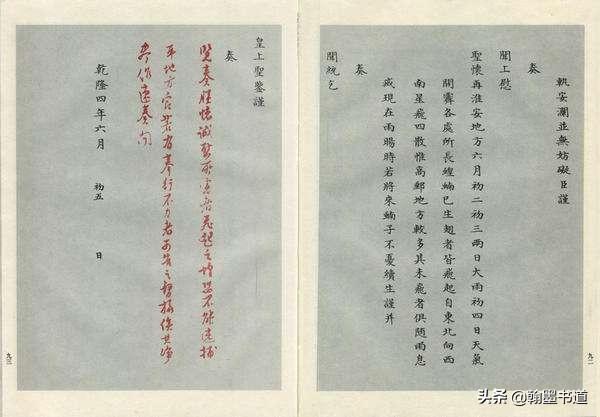 執安瀾並無妨礙臣謹
奏
聞上慰
聖懷再淮安地方六月初二初三兩日大雨初四日天氣
開霽各處所長蝗蝻已生翅者皆飛起自東北向西
南星飛四散惟高郵地方較多其未飛者俱隨雨息
滅現在雨暘時若將來蝻子不憂續生謹并
奏
聞統乞
九二
皇上聖鑒謹
奏
覽奏飛起之蝗恐不能速捕
耳地方官若有奉行不力者可告之督撫俟其
參作速奏聞
乾隆四年六月初五日
九三
头条 @翰墨书道